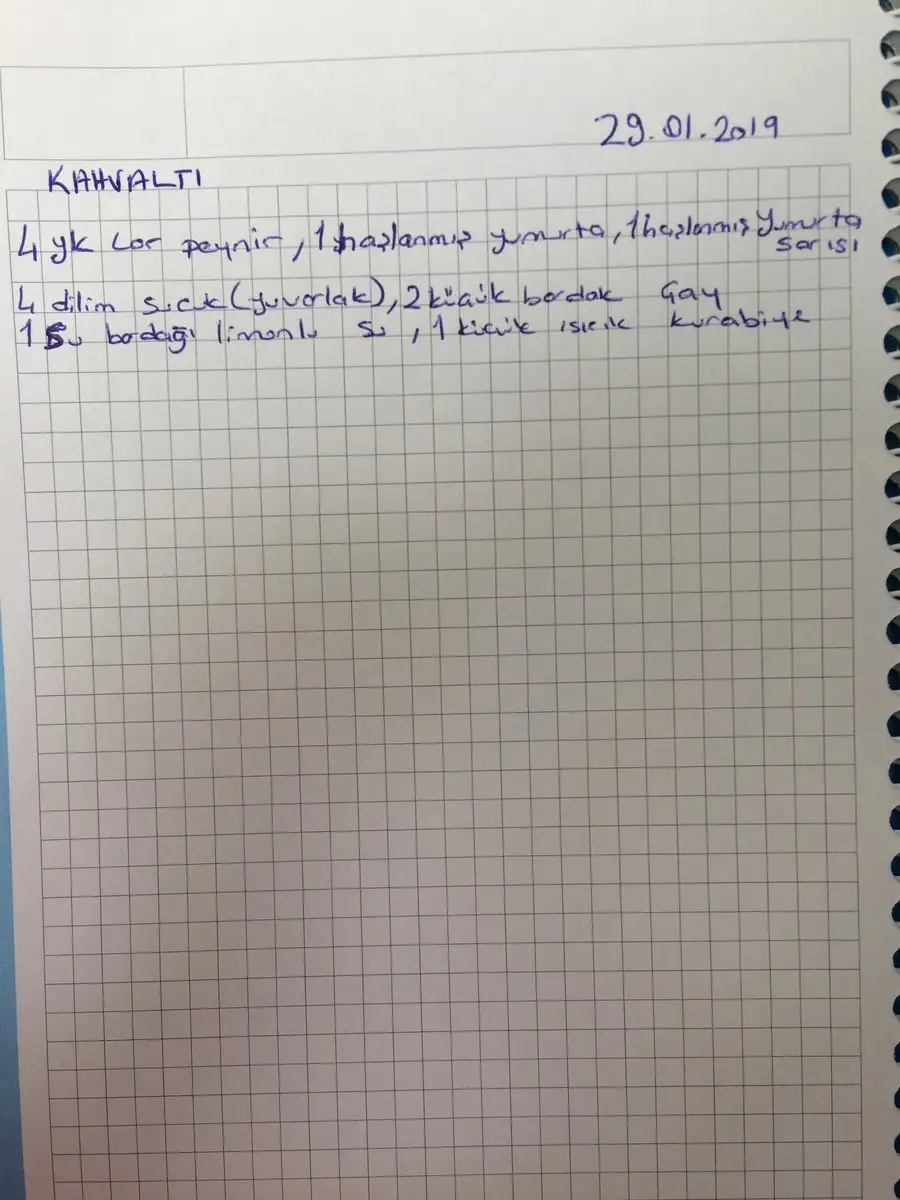 29.01.2019
KAHVALTI
4 yk Lor peynir, 1 haşlanmış yumurta, 1 haşlanmış yumurta
sarısı
4 dilim sucuk (yuvarlak), 2 küçük bardak çay
1 su bardağı limonlu su, 1 küçük ıslık kurabiye